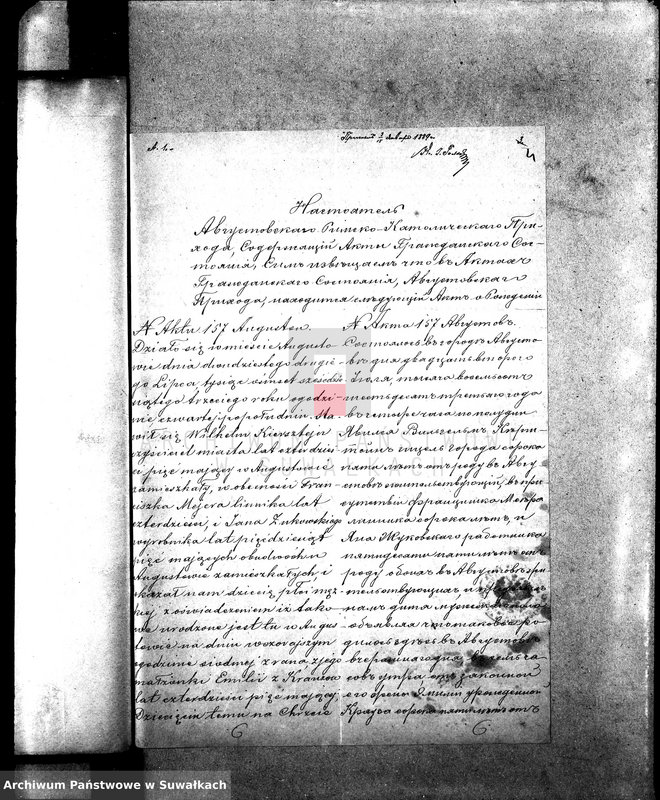 Принят 3/15 Января 1889 г.
Настоятель
Августовского Римско-Католического При-
хода, Содержащий Акты Гражданского Сос-
тояния, Сим извещаем что в Актах
Гражданского Состояния, Августовского
Прихода, находится следующий Акт о Рождении
N Aktu 157 Augustow.
Działo się w mieście Augusto
wie dnia dwudziestego drugie-
go Lipca, tysiąc osmset sześćdzie-
siątego trzeciego roku o godzi-
nie czwartej popołudniu. Sta-
wił się Wilhelm Kiersztejn
mieszkaniec miasta lat czterdzieści
i pięć mający w Augustowie
zamieszkały, w obecności Fran-
ciszka Mejera lat
czterdzieści, i Jana Żukowskiego
wyrobnika lat pięćdziesiąt
pięć mających obudwóch w
Augustowie zamieszkałych, i
okazał nam dziecię płci męz-
kiej, zoświadczeniem iż tako-
we urodzone jest tu w Augus-
towie na dniu wczorajszym
o godzinie siodmej z rana z jego
małżonki Emilii z Krauzów
lat czterdzieści pięć mającej
Dziecięciu temu na Chrzcie
N Акта 157 Августов.
Состоялось в городе Августо
ве дня двадцать второго
Июля тысяча восемьсот
шестьдесят третьего года
в четыре часа пополудни
Явился Вильгельм Кирш
тейн города сорока
пяти лет от роду в Авгу
стове жительствующий, в при
сутствии Францишка Мейера
сорока лет, и
Яна Жуковского работника
пятидесяти пяти лет от
роду обоих в Августове жи
тельствующих и
нам дитя мужеского пола
объявляя что таковое ро
дилось здесь в Августове
вчерашнего дня в
сов утра от законной
его жены Эмилии урожденной
Крауза сорока пяти лет от
6
6
Archiwum Państwowe w Suwałkach